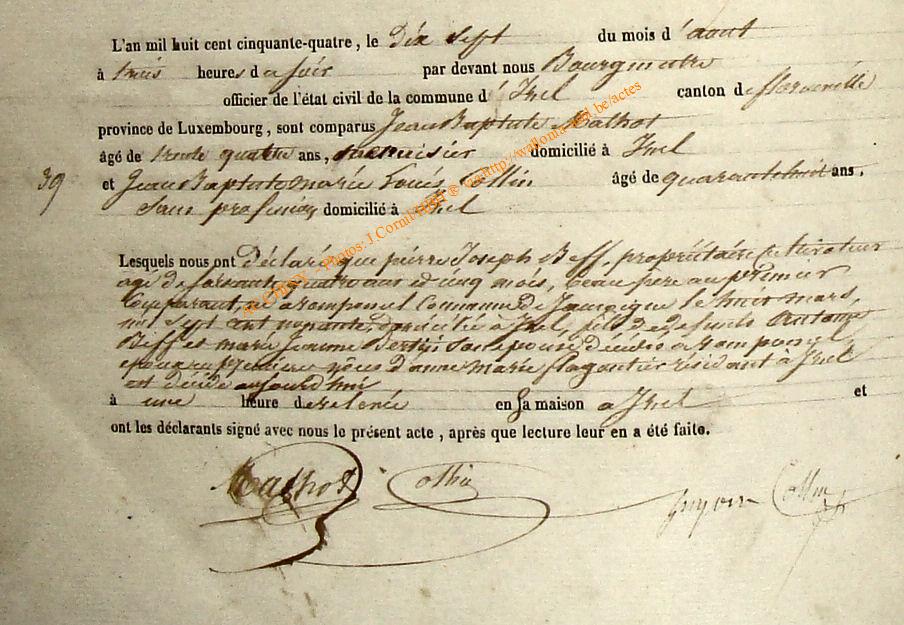 L'an mil huit cent cinquante-quatre, le dix sept du mois d'aout
à trois heures du soir par devant nous Bourgmestre
officier de l'état civil de la commune d'Izel canton de florenville
province de Luxembourg, sont comparus Jean Baptiste Mathot
âgé de trente quatre ans, menuisier domicilié à Izel
39
et Jean Baptiste marie Louis Collin âgé de quarante huit ans.
Sans profession domicilié à Izel
Lesquels nous ont déclaré que pierre Joseph Beff, propriétaire cultivateur
agé de soixante quatre ans et cinq mois, beau pere au premier
Comparant, né à romponcel Commune de Jamoigne le huit mars,
mil sept cent nonante, domicilié à Izel, fils de defunts Antoine
Beff et marie Jeanne époux décédés à romponcel
époux en premières nôces d'anne marie résidant à Izel
est décédé aujourd'hui
à une heure de relevée en sa maison a Izel et
ont les déclarants signé avec nous le présent acte, après que lecture leur en a été faite.
Mathot Collin Collin
Photos: J.Cornil http://wallonia-asbl.be/actes